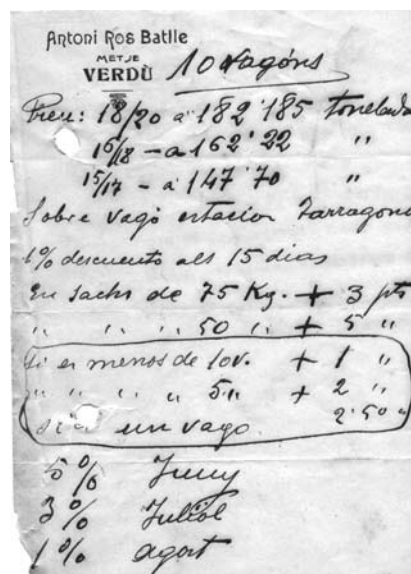 Antoni Ros Batlle
METJE
VERDÙ
10 Vagóns
Preu: 18/20 a 182'185 tonelada
16/18 - a 162'22 "
15/17 - a 147'70 "
Sobre vagó estacion Tarragona
1% descuento als 15 dias
En sachs de 75 Kg. + 3 pts
" " " 50 " + 5 "
Si es menos de 10 v. + 1 "
" " " " 5 " + 2 "
un vago. 2'50 "
5% Juny
3% Juliol
1% agost